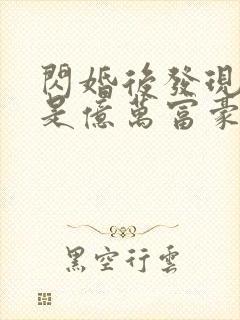 閃婚後發現
是億萬富豪
黑空行雲